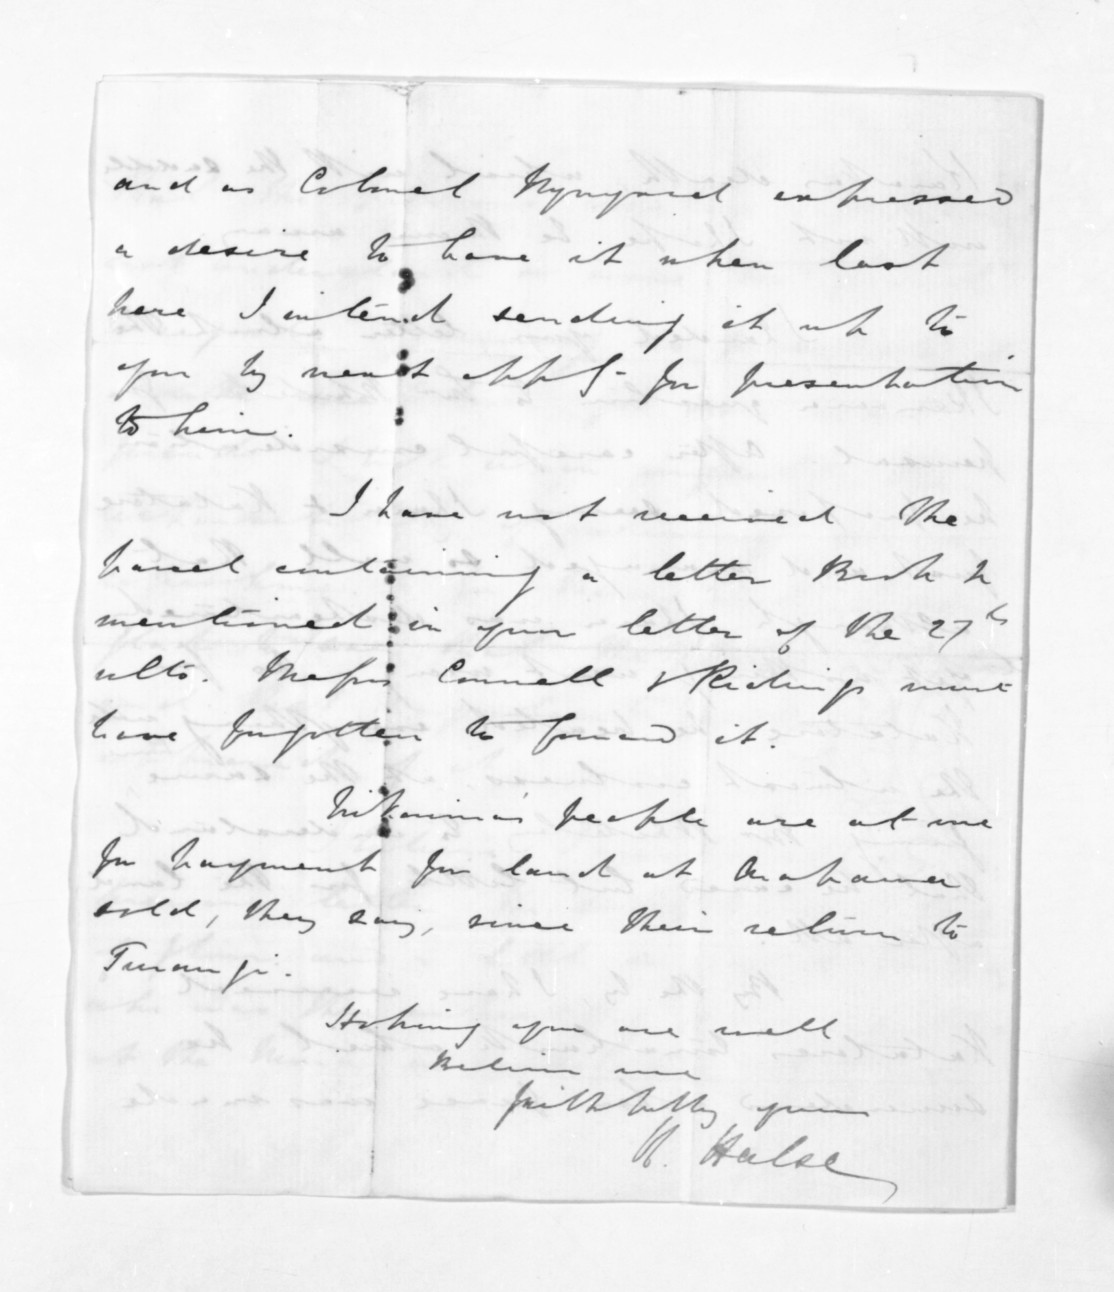 and as Colonel Wynyard expressed
a desire to have it when last
here I intend sending it up to
you by next oppy. for presentation
to him.
I have not received the
parcel containing a letter Book &
mentioned in your letter of the 27th
ulto. Messrs Connell & Ridings must
have forgotten to forward it.
people are at me
for payment for land at
sold, they say, since their return to
Turangi.
Hoping you are well
Believe me
faithfully yours
H. Halse